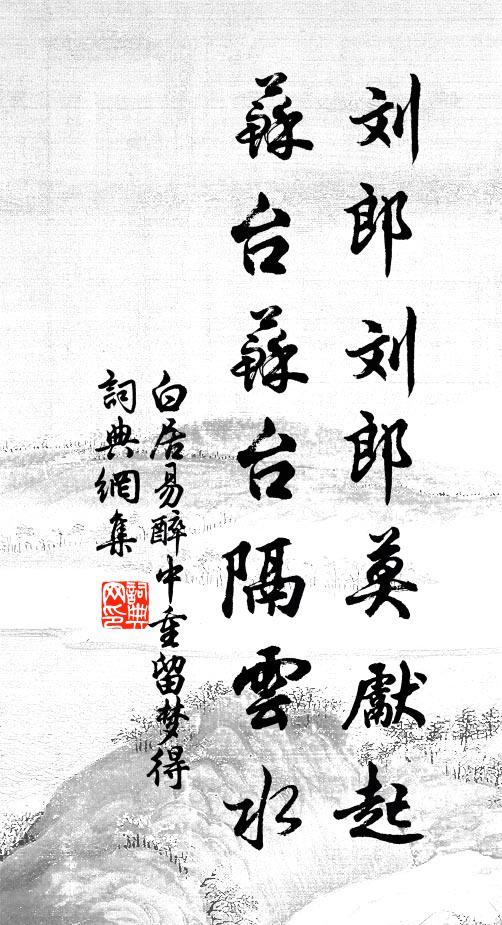 刘郎刘郎莫獻起
蘇台蘇台隔雲水
白居易醉中重留梦得
詞典網集
詞典
网印